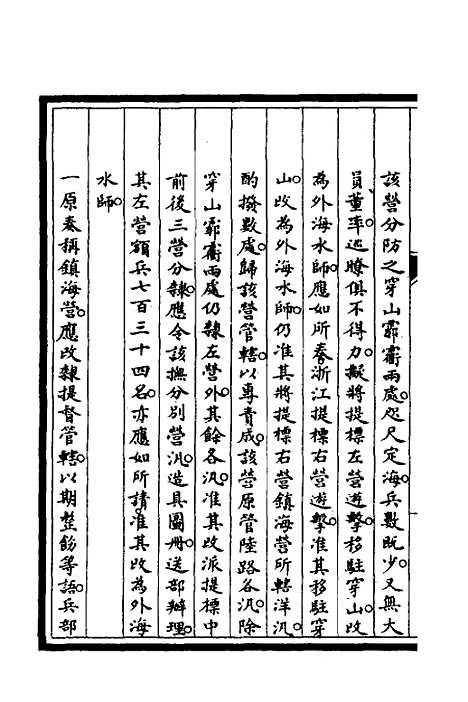 該營分防之穿山霩𩇕兩處。咫尺定海。兵數既少。又無大
員董率。巡瞭俱不得力。擬將提標左營遊擊移駐穿山。改
為外海水師。應如所奏。浙江提標右營遊擊。准其移駐穿
山。改為外海水師。仍准其將提標右營鎮海營所轄洋汛。
酌撥數處。歸該營管轄。以專責成。該營原管陸路各汛。除
穿山霩𩇕兩處仍隸左營外。其餘各汛。准其改派提標中
前後三營分隸。應令該撫分別營汛。造具圖冊。送部辦理。
其左營額兵七百三十四名。亦應如所請。准其改為外海
水師。
一原奏稱鎮海營。應改隸提督管轄。以期整飭等語。兵部